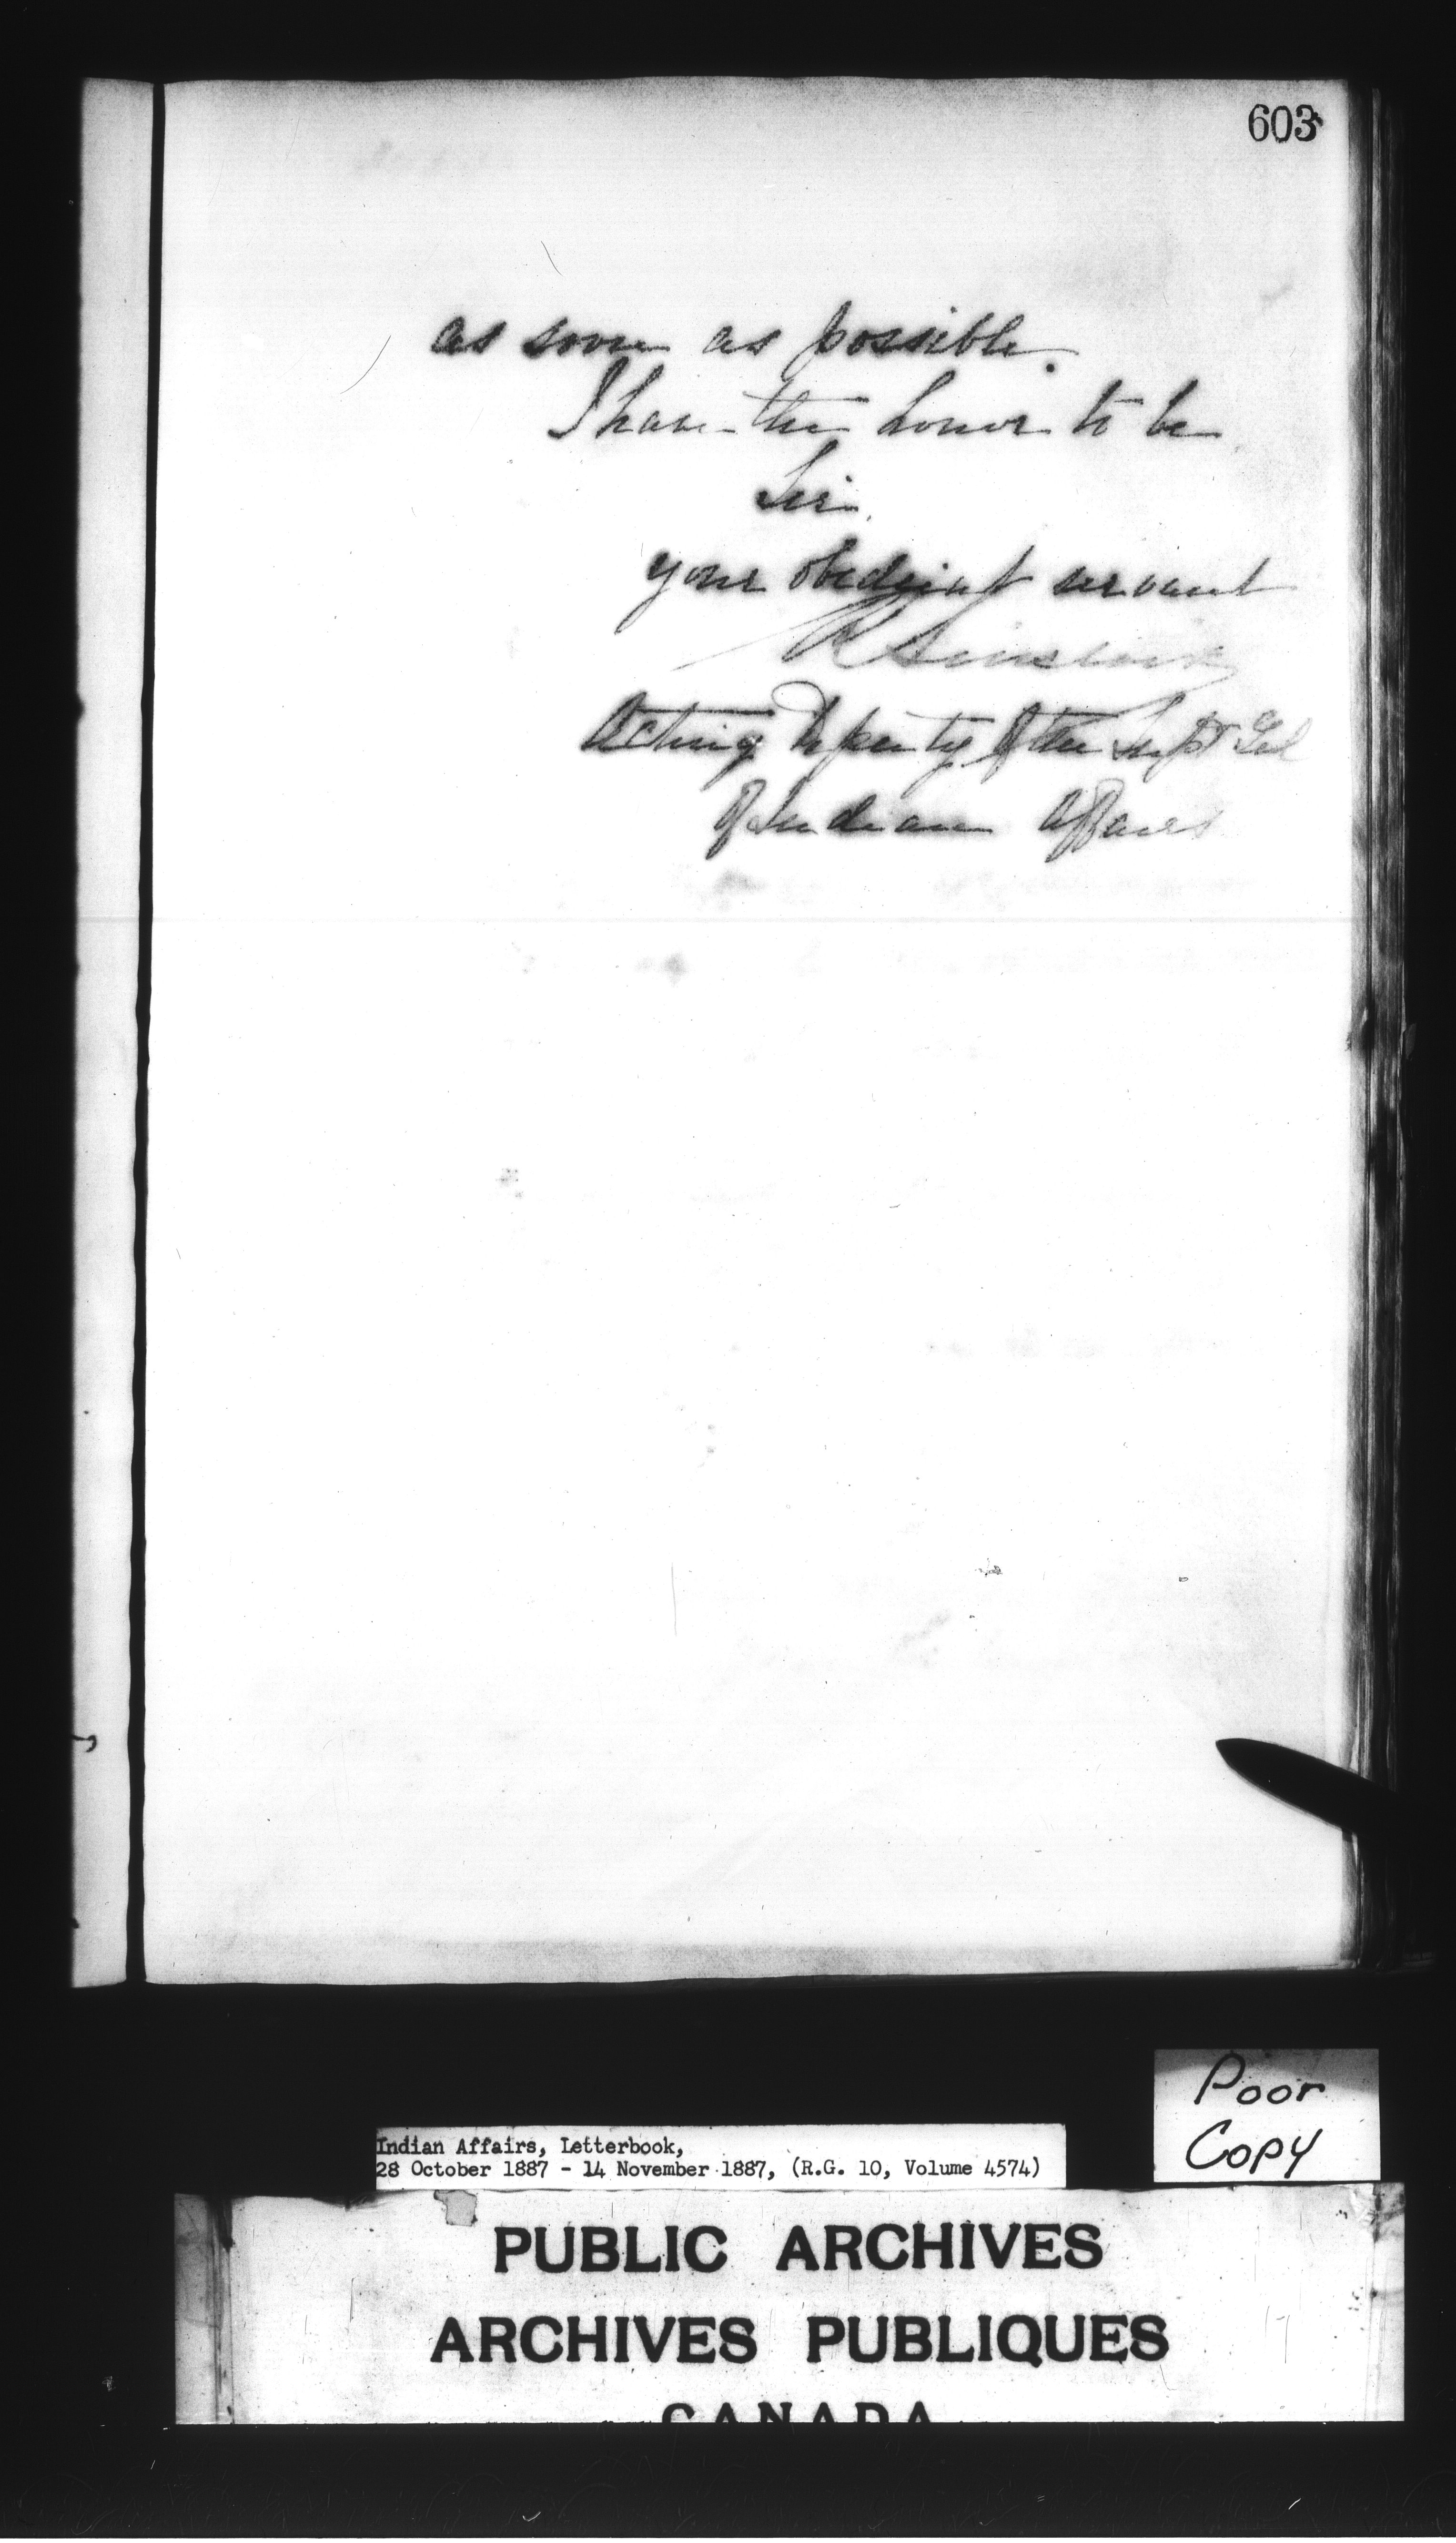 603
as soon as possible.
I have the honor to be
Sir,
your obedient servant
R Sinclair
Acting Deputy of the Supt Genl
of Indian Affairs
Poor
Copy
Indian Affairs, Letterbook,
28 October 1887 - 14 November 1887, (R.G. 10, Volume 4574)
PUBLIC ARCHIVES
ARCHIVES PUBLIQUES
CANADA